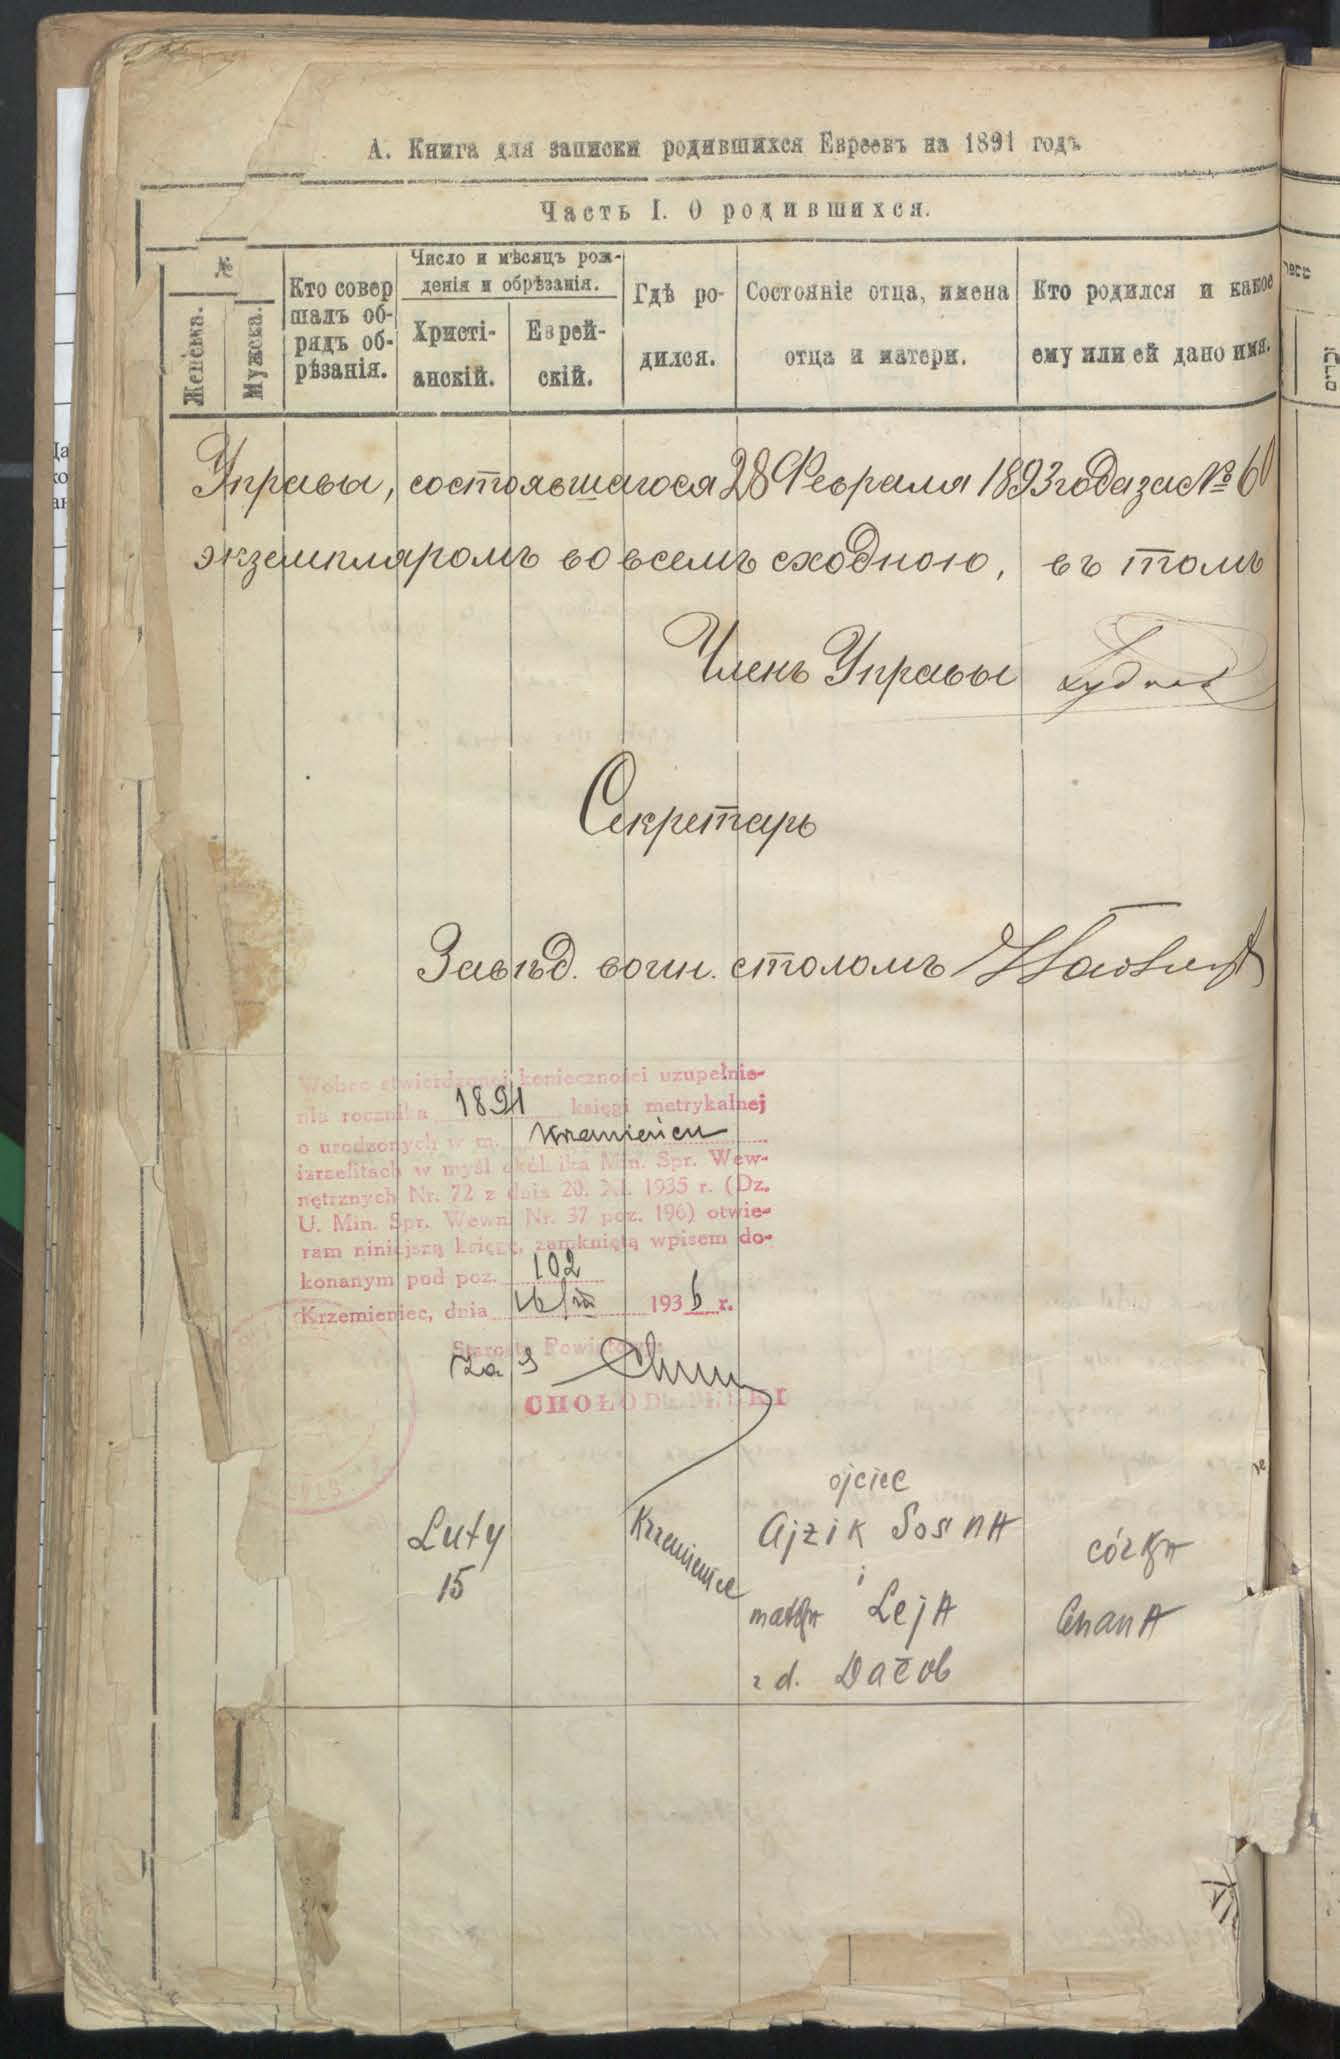 А. Книга для записки родившихся Евреевъ на 1891 годъ
Часть I. О родившихся.
№
Женска.
Мужска.
Кто совер
шалъ об-
рядъ об-
рѣзанія.
Число и мѣсяцъ рож-
денія и обрѣзанія.
Христі-
анскій.
Еврей-
скій.
Гдѣ ро-
дился.
Состояніе отца, имена
отца и матери.
Кто родился и какое
ему или ей дано имя.
Управы, состоявшагося 28 Февраля 1893 года за № 60
экземпляромъ во всемъ сходною, въ томъ
Членъ Управы
Секретарь
Завѣд. воин. столомъ
Wobec stwierdzonej konieczności uzupełnie-
nia rocznika 1891 księgi metrykalnej
o urodzonych w m. Krzemieńcu
izraelitach w myśl okólnika Min. Spr. Wew-
nętrznych Nr. 72 z dnia 20. XI. 1935 r. (Dz.
U. Min. Spr. Wewn. Nr. 37 poz. 196) otwie-
ram niniejszą księgę, zamkniętą wpisem do-
konanym pod poz. 102
Krzemieniec, dnia 16/ 1936 r.
Starosta Powiatowy
za S
ojciec
Luty
15
Krzemieniec
Ajzik Sosna
i
matka Leja
z d.
córka
Chana